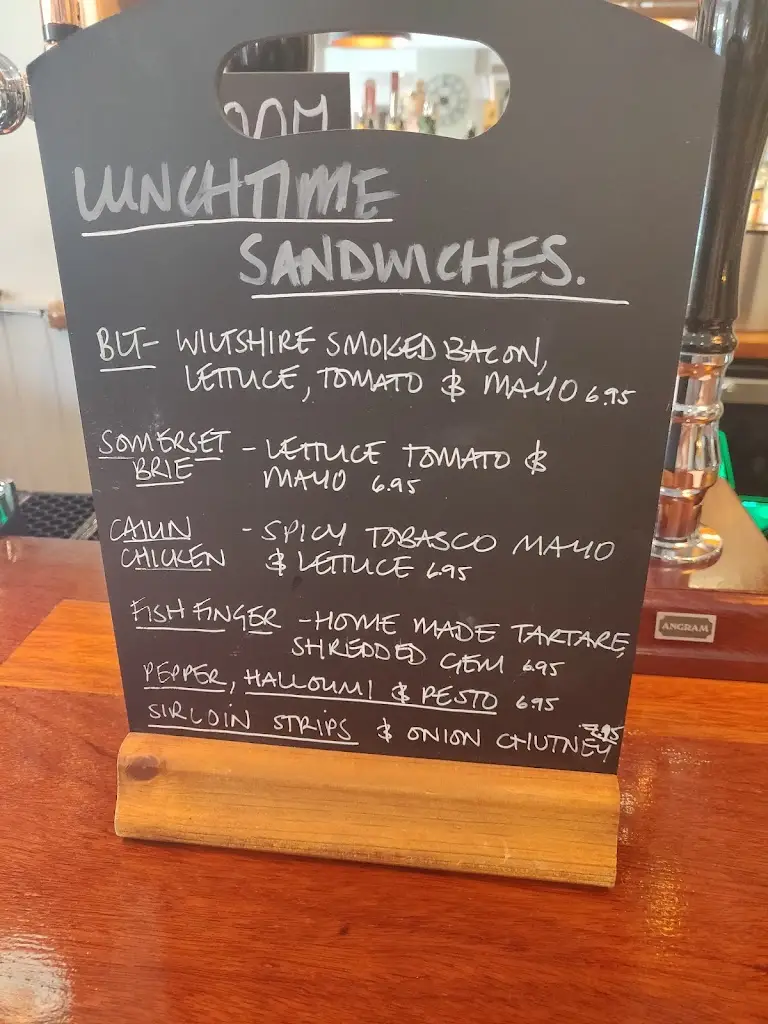 OOM
LUNCHTIME
SANDWICHES.
BLT- WILTSHIRE SMOKED BACON,
LETTUCE, TOMATO & MAYO 6.95
SOMERSET - LETTUCE TOMATO &
BRIE MAYO 6.95
CAJUN - SPICY TOBASCO MAYO
CHICKEN & LETTUCE 6.95
FISH FINGER - HOME MADE TARTARE,
SHREDDED GEM 6.95
PEPPER, HALLOUMI & PESTO 6.95
SIRLOIN STRIPS & ONION CHUTNEY 7.95
ANGRAM